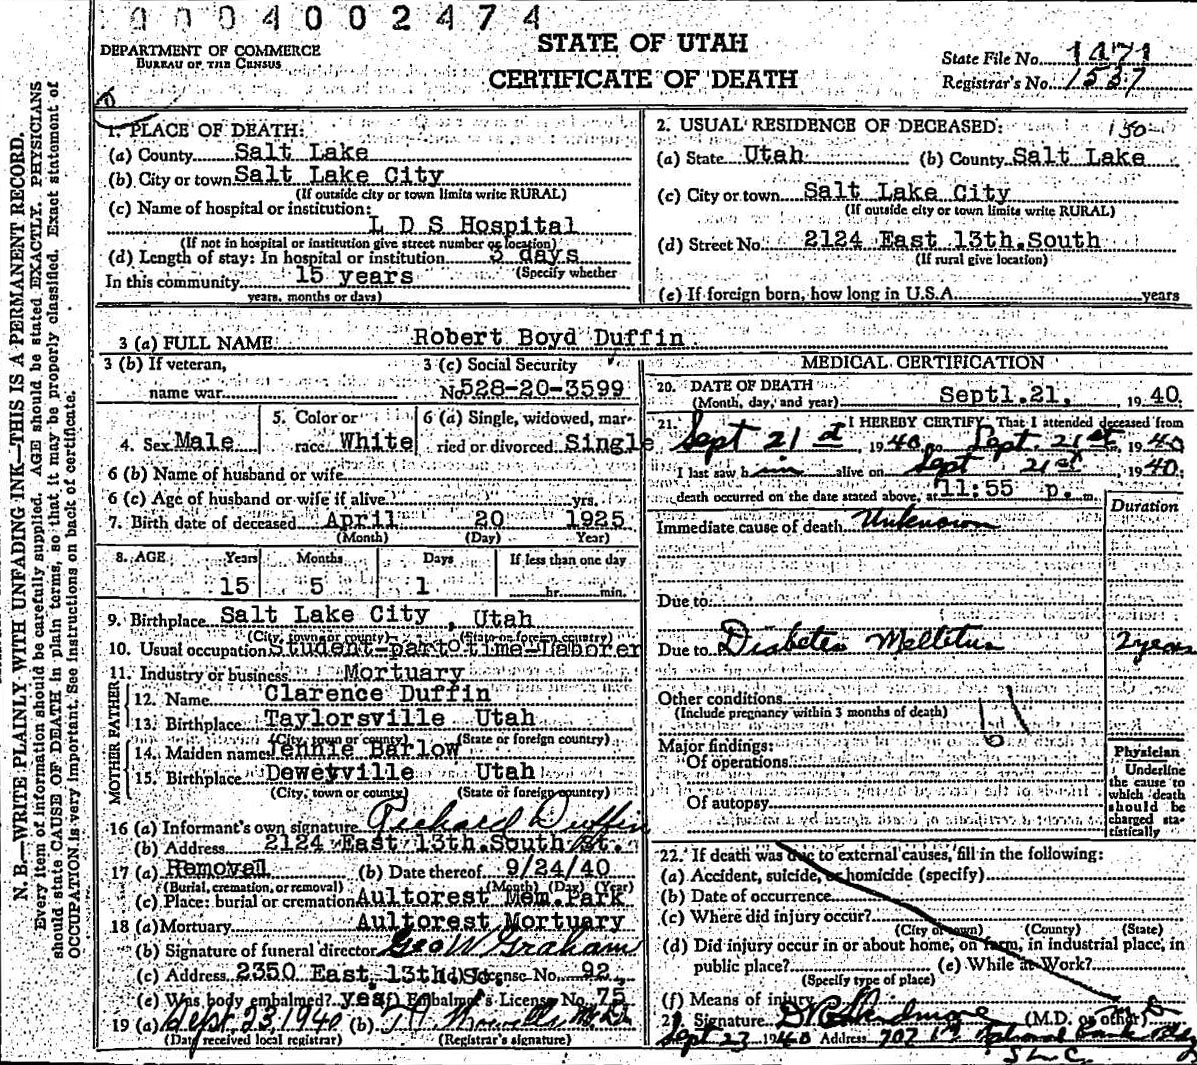 0004002474
DEPARTMENT OF COMMERCE
BUREAU OF THE CENSUS
STATE OF UTAH
CERTIFICATE OF DEATH
State File No. 1471
Registrar's No. 1537
N. B.—WRITE PLAINLY WITH UNFADING INK—THIS IS A PERMANENT RECORD.
Every item of information should be carefully supplied. AGE should be stated EXACTLY. PHYSICIANS
should state CAUSE OF DEATH in plain terms, so that it may be properly classified. Exact statement of
OCCUPATION is very important. See instructions on back of certificate.
1. PLACE OF DEATH:
(a) County Salt Lake
(b) City or town Salt Lake City
(If outside city or town limits write RURAL)
(c) Name of hospital or institution:
L D S Hospital
(If not in hospital or institution give street number or location)
(d) Length of stay: In hospital or institution 3 days
(Specify whether
In this community 15 years
years, months or days)
2. USUAL RESIDENCE OF DECEASED: 150
(a) State Utah (b) County Salt Lake
(c) City or town Salt Lake City
(If outside city or town limits write RURAL)
(d) Street No. 2124 East 13th.South
(If rural give location)
(e) If foreign born, how long in U.S.A. years
3 (a) FULL NAME Robert Boyd Duffin
3 (b) If veteran,
name war
3 (c) Social Security
No. 528-20-3599
4. Sex Male
5. Color or
race White
6 (a) Single, widowed, mar-
ried or divorced Single
6 (b) Name of husband or wife
6 (c) Age of husband or wife if alive yrs.
7. Birth date of deceased April 20 1925
(Month) (Day) Year)
8. AGE Years Months Days If less than one day
15 5 1 hr. min.
9. Birthplace Salt Lake City , Utah
(City, town or county) (State or foreign country)
10. Usual occupation Student-part time-Laborer
11. Industry or business Mortuary
FATHER
12. Name Clarence Duffin
13. Birthplace Taylorsville Utah
(City, town or county) (State or foreign country)
MOTHER
14. Maiden name Jennie Barlow
15. Birthplace Deweyville Utah
(City, town or county) (State or foreign country)
16 (a) Informant's own signature Richard Duffin
(b) Address 2124 East 13th.South St.
17 (a) Removal (b) Date thereof 9/24/40
(Burial, cremation, or removal) (Month) (Day) (Year)
(c) Place: burial or cremation Aultorest Mem. Park
18 (a) Mortuary Aultorest Mortuary
(b) Signature of funeral director Geo W Graham
(c) Address 2350 East 13th.So. (d) License No. 92
(e) Was body embalmed? yes (f) Embalmer's License No. 75
19 (a) Sept. 23, 1940 (b) M.D.
(Date received local registrar) (Registrar's signature)
MEDICAL CERTIFICATION
20. DATE OF DEATH
(Month, day, and year) Septl.21, 1940.
21. I HEREBY CERTIFY, That I attended deceased from
Sept 21st, 1940, to Sept. 21st, 1940
I last saw him alive on Sept 21st, 1940.
death occurred on the date stated above, at 11:55 p. m.
Duration
Immediate cause of death Unknown
Due to
Due to Diabetes Mellitus 2 years
Other conditions
(Include pregnancy within 3 months of death)
61
Major findings:
Of operations
Of autopsy
Physician
Underline
the cause to
which death
should be
charged sta-
tistically
22. If death was due to external causes, fill in the following:
(a) Accident, suicide, or homicide (specify)
(b) Date of occurrence
(c) Where did injury occur?
(City or town) (County) (State)
(d) Did injury occur in or about home, on farm, in industrial place, in
public place? (e) While at Work?
(Specify type of place)
(f) Means of injury
Signature (M.D. or other) D
Sept 23 1940 Address 707 National Bank Bldg
S L C.